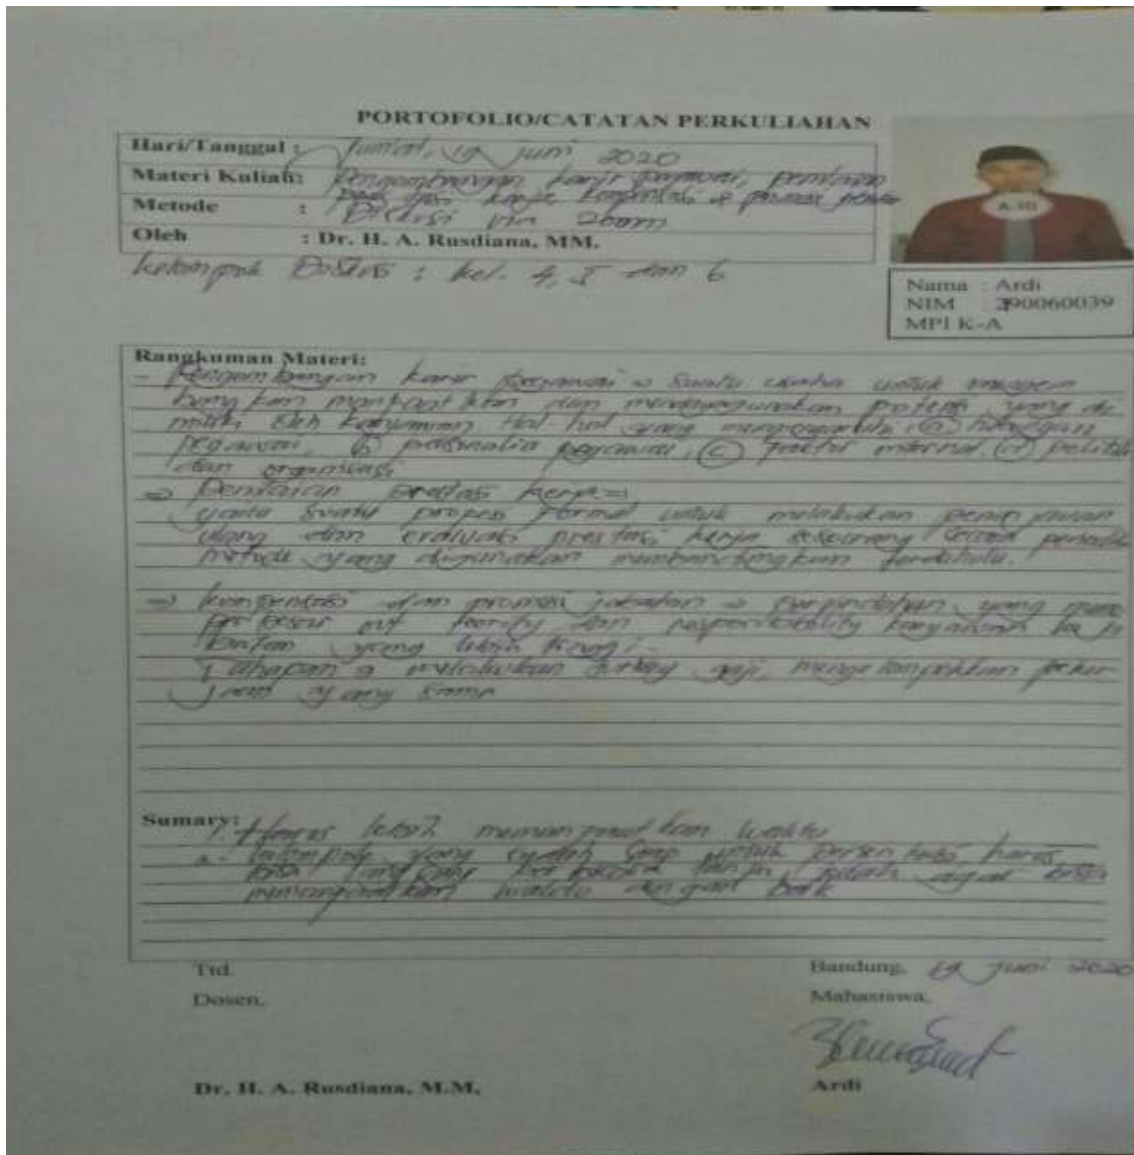 PORTOFOLIO/CATATAN PERKULIAHAN
Hari/Tanggal : Jum'at, 19 Juni 2020
Materi Kuliah: Pengembangan karir pegawai, penilaian
kerja kompensasi & promosi
Metode : Diskusi via Zoom
Oleh : Dr. H. A. Rusdiana, MM.
Kelompok Diskusi : kel. 4, 5 dan 6
A.101
Nama : Ardi
NIM : 2190060039
MPI K-A
Rangkuman Materi:
- Pengembangan karir pegawai → Suatu usaha untuk
bangkan manfaatkan dan mendayagunakan potensi yang di
miliki oleh karyawan Hal hal yang mempengaruhi (a) hubungan
pegawai, (b) personalia pegawai, (c) faktor internal (d) politik
dan organisasi
⇒ Penilaian prestasi kerja ⇒
yaitu suatu proses formal untuk melakukan peninjauan
ulang dan evaluasi prestasi kerja seseorang secara periodik
metode yang digunakan membandingkan terdahulu.
⇒ kompensasi dan promosi jabatan → perpindahan yang
dan responsibility karyawan ke ja
batan yang lebih tinggi.
Tahapan → melakukan survey gaji, mengelompokkan peker
jaan yang sama
Sumary:
1. Harus lebih2 memanfaatkan waktu
2. kelompok yang sudah siap untuk persentasi harus
bisa agar bisa
memanfaatkan waktu dengan baik
Ttd. Bandung, 19 Juni 2020
Dosen, Mahasiswa,
Dr. H. A. Rusdiana, M.M. Ardi